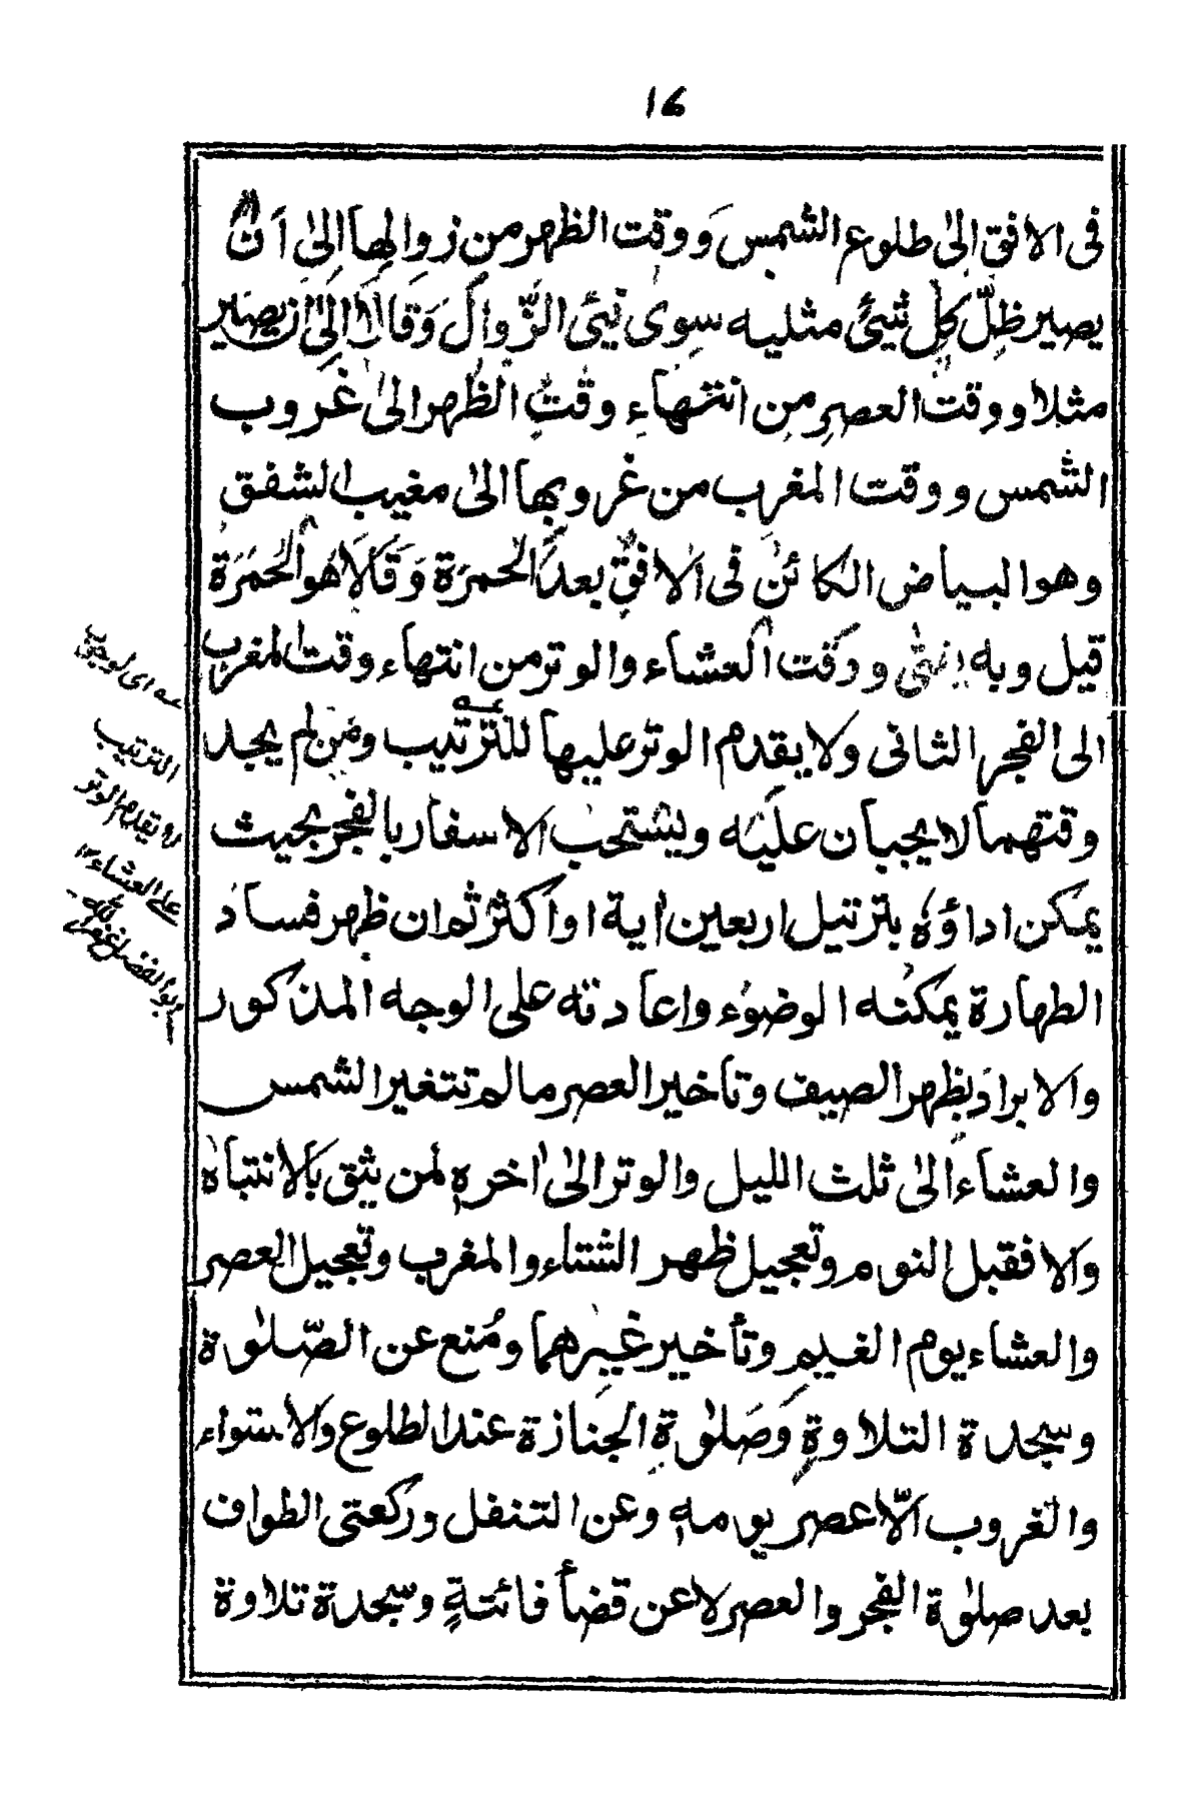 16
فى الافق الىٰ طلوع الشمس ووقت الظهر من زوالها الىٰ اَنْ
يصير ظِلّ كل شيئ مثليه سوى فيئ الزّوال وَقالا الىٰ ان يصير
مثلا ووقت العصر من انتهاءِ وقتِ الظهر الىٰ غروب
الشمس ووقت المغرب من غروبها الىٰ مغيب الشفق
وهو البياض الكائن فى الافق بعد الحمرة وَقَالَا هُو الحُمَرَة
قيل وبه يفتى ووقت العشاء والوتر من انتهاء وقت المغرب
الى الفجر الثانى ولا يقدم الوتر عليها للترتيب ومَن لم يجد
وقتهما لا يجبان عليه ويستحب الاسفار بالفجر بحيث
يمكن اداؤه بترتيل اربعين اٰية او اكثر ثم ان ظهر فساد
الطهارة يمكنه الوضوء واعادته على الوجه المذكور
والابراد بظهر الصيف وتاخير العصر ما لم تتغير الشمس
والعشاء الىٰ ثلث الليل والوتر الىٰ اٰخره لمن يثق بالانتباه
والا فقبل النوم وتعجيل ظهر الشتاء والمغرب وتعجيل العصر
والعشاء يوم الغيم وتأخير غيرهما ومُنع عن الصّلوٰة
وسجدة التلاوةِ وَصَلوٰةِ الجنازة عند الطلوع والاستواء
والغروب الّا عصر يومه وعن التنفل وركعتى الطواف
بعد صلوٰة الفجر والعصر لا عن قضأ فائتةٍ وسجدة تلاوة
ـه اى لوجوب
الترتيب
لا يقدم الوتر
على العشاء ١٢
ابو الفضل